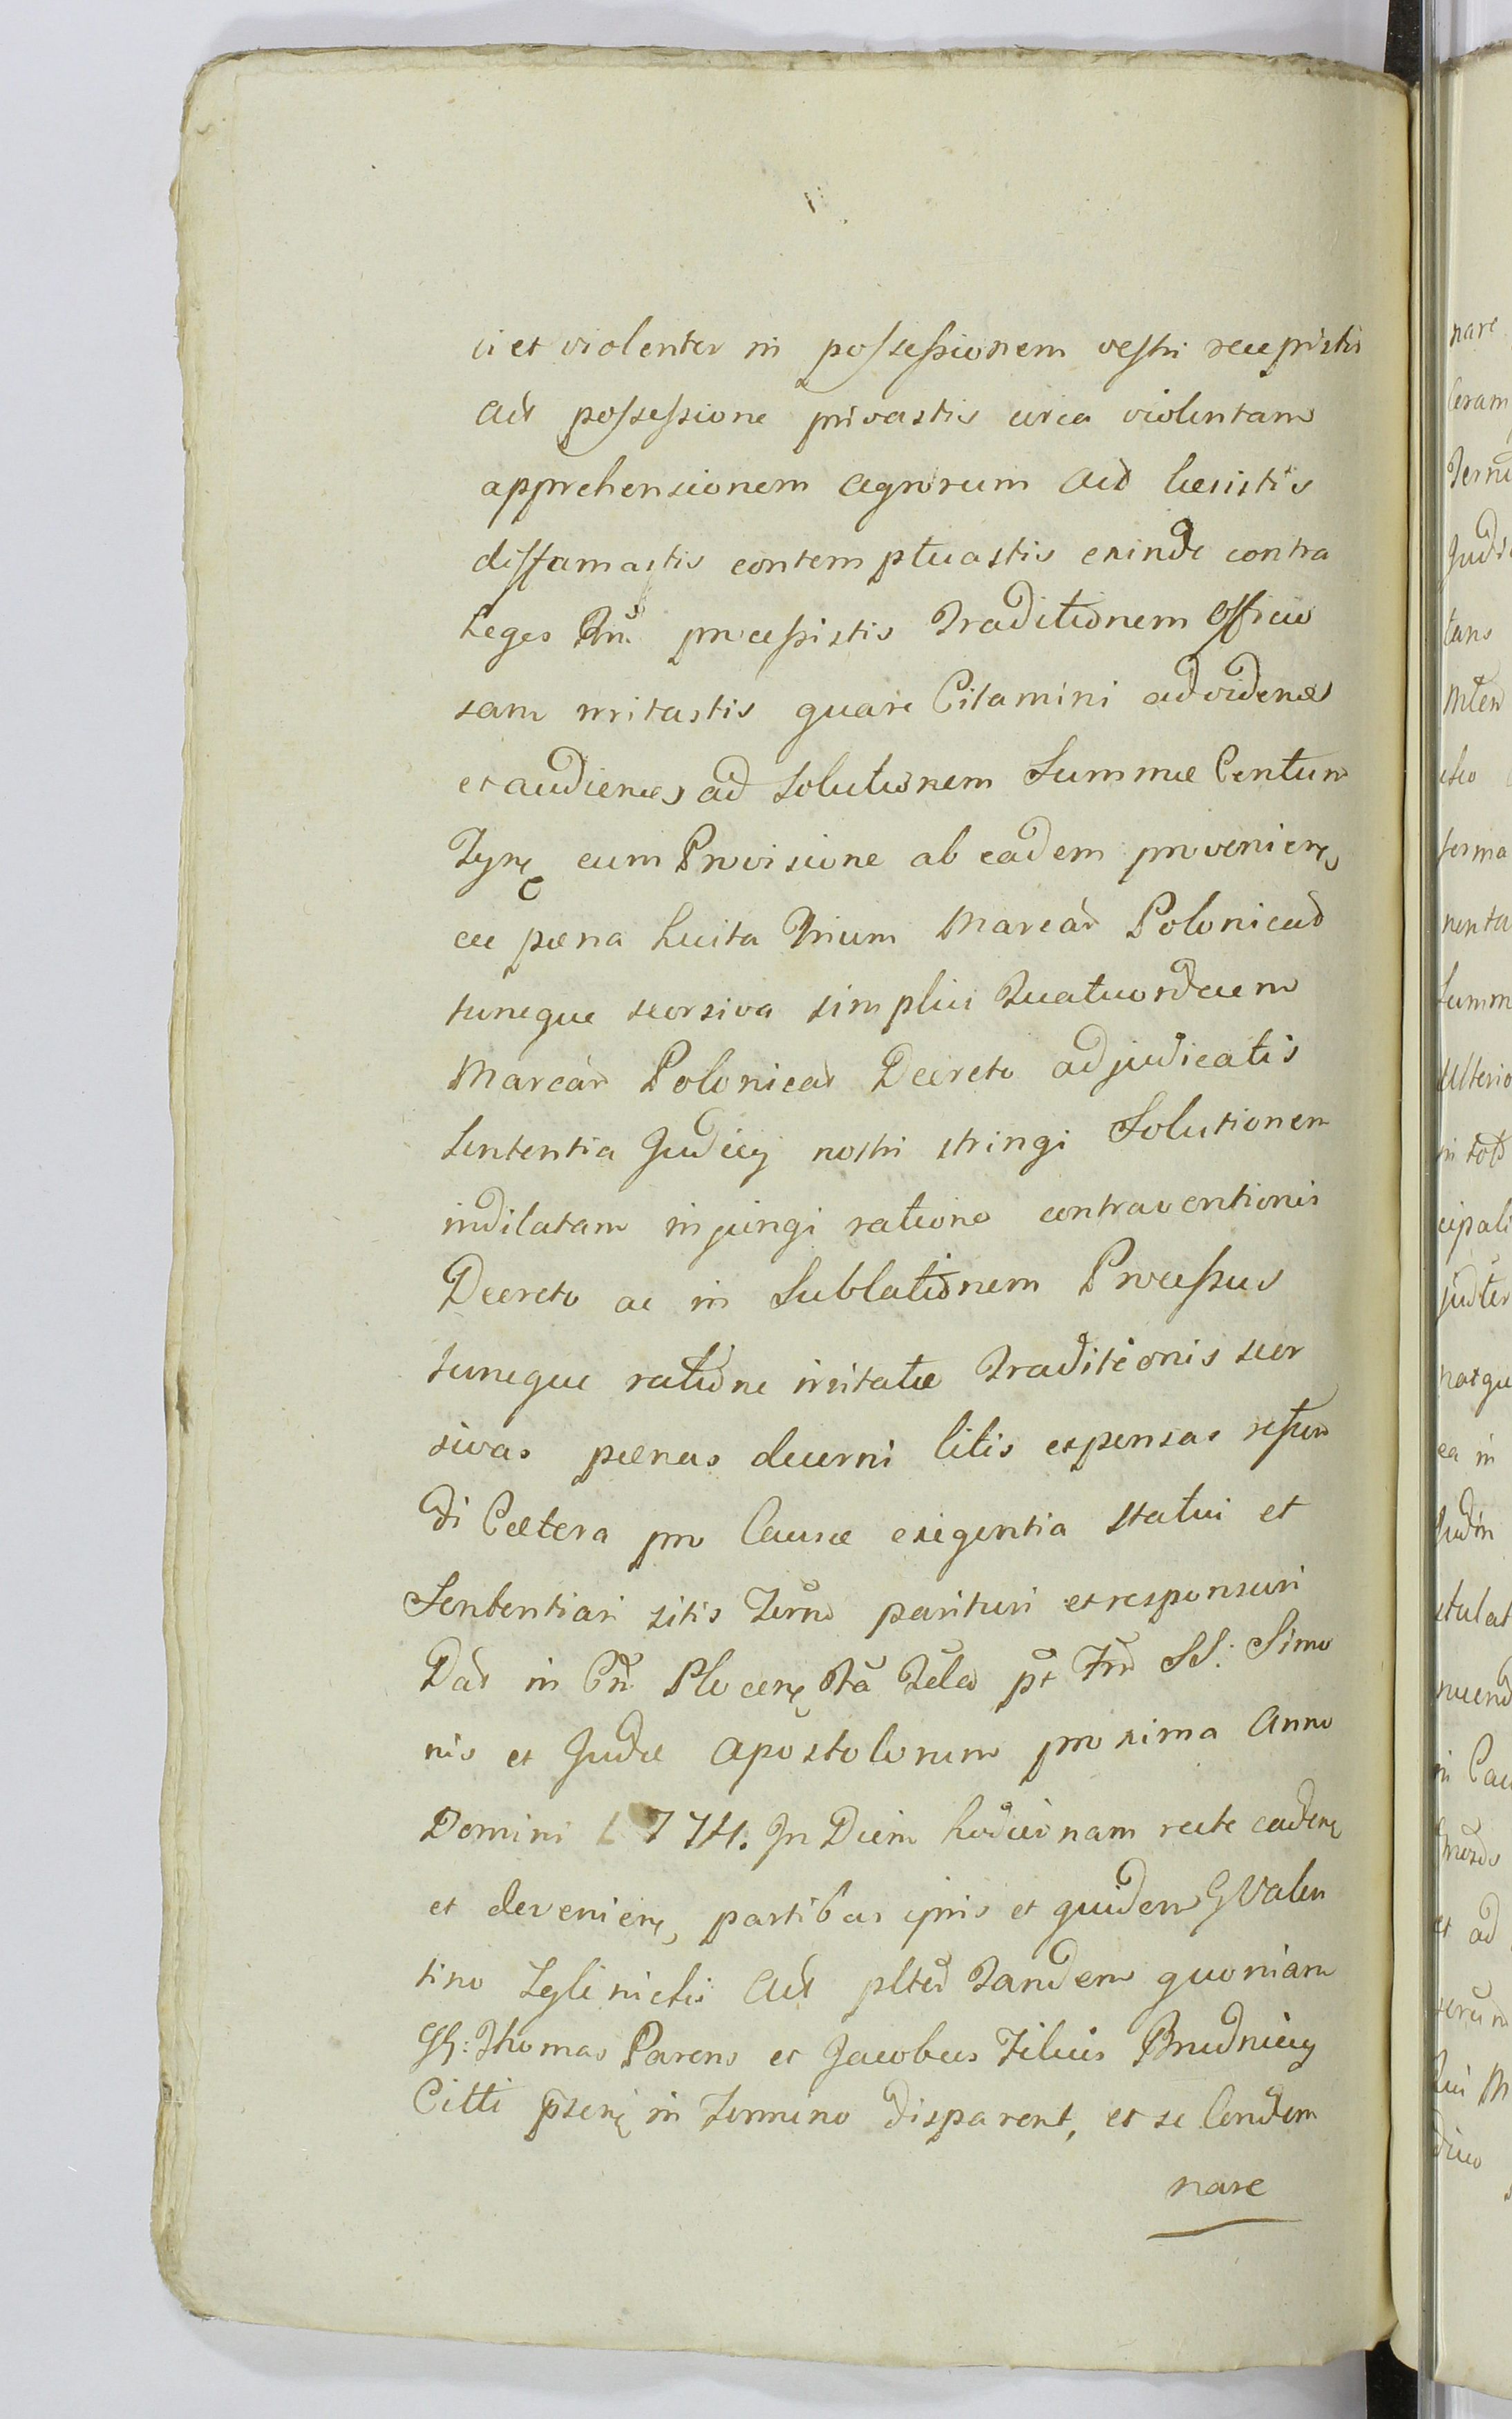 vi et violenter in possessionem vestri recepistis
Act possessione privastis circa violentam
apprehensionem agrorum Act læsistis
diffamastis contemptuastis exinde contra
Leges processistis Traditionem Officio
sam irritastis quare Citamini ad videnḑ
et audienḑ ad Solutionem Summæ Centum
Tynf cum Provisione ab eadem provenienţ
ac pæna Luita Trium Marcar Polonical
tuncque seorsiva simplici Quatuordecem
Marcar Polonical Decreto adjudicatis
Sententia Judicij nostri stringi Solutionem
indilatam injungi ratione contraventionis
Decreto ac in Sublationem Processus
tuncque ratione irritatæ Traditionis seor
sivas pænas decerni litis expensas refun
di Cætera pro Causæ exigentia statui et
Sententiari sitis Termo parituri et responsuri
Dat in Plocen pt SS. Simo
nis et Judæ Apostolorum proxima Anno
Domini 1774. In Diem hodiernam recte cadenţ
et devenienţ, partibus ipsis et quidem G Valen
tino Act pltn Tandem quoniam
GG: Thomas Parens et Jacobus Filius Brudnicy
Citti psenţ in Termino disparent, et se Condem
nare
nare
tans
ferma
nenta
Summ
Ulterio
cipali
ea in
stulat
et ad